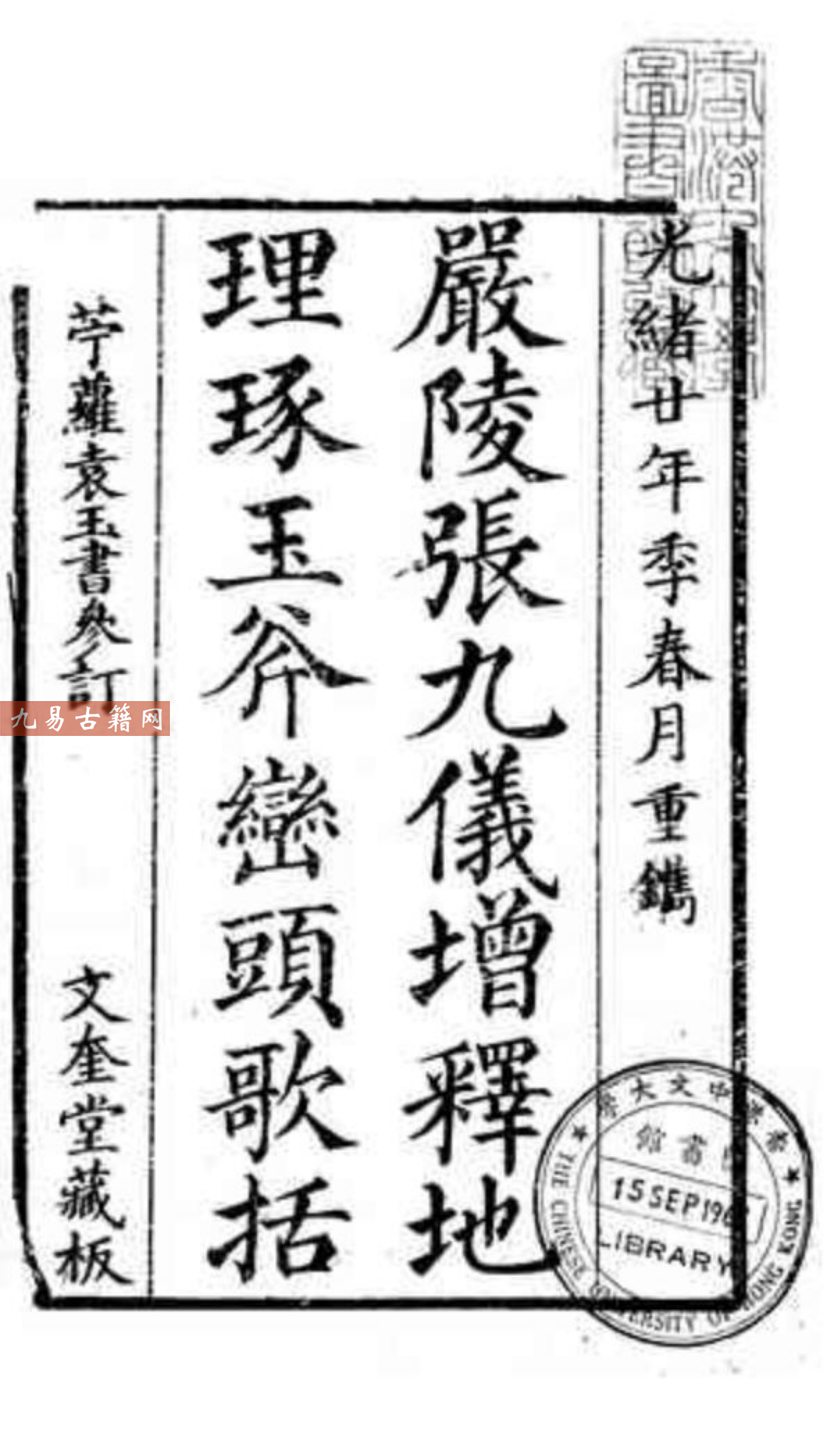 光緒廿年季春月重鐫
嚴陵張九儀增釋地
理琢玉斧巒頭歌括
苧蘿袁玉書參訂
文奎堂藏板
九易古籍网
香港中文大學
圖書館
15 SEP 196
LIBRARY
THE CHINESE UNIVERSITY OF HONG KONG